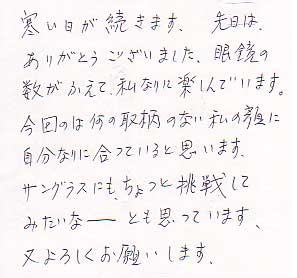 寒い日が続きます、 先日は、
ありがとうございました、眼鏡の
数がふえて、私なりに楽しんでいます。
今回のは何の取柄のない私の顔に
自分なりに合っていると思います、
サングラスにも、ちょっと挑戦して
みたいなーとも思っています、
又よろしくお願いします、